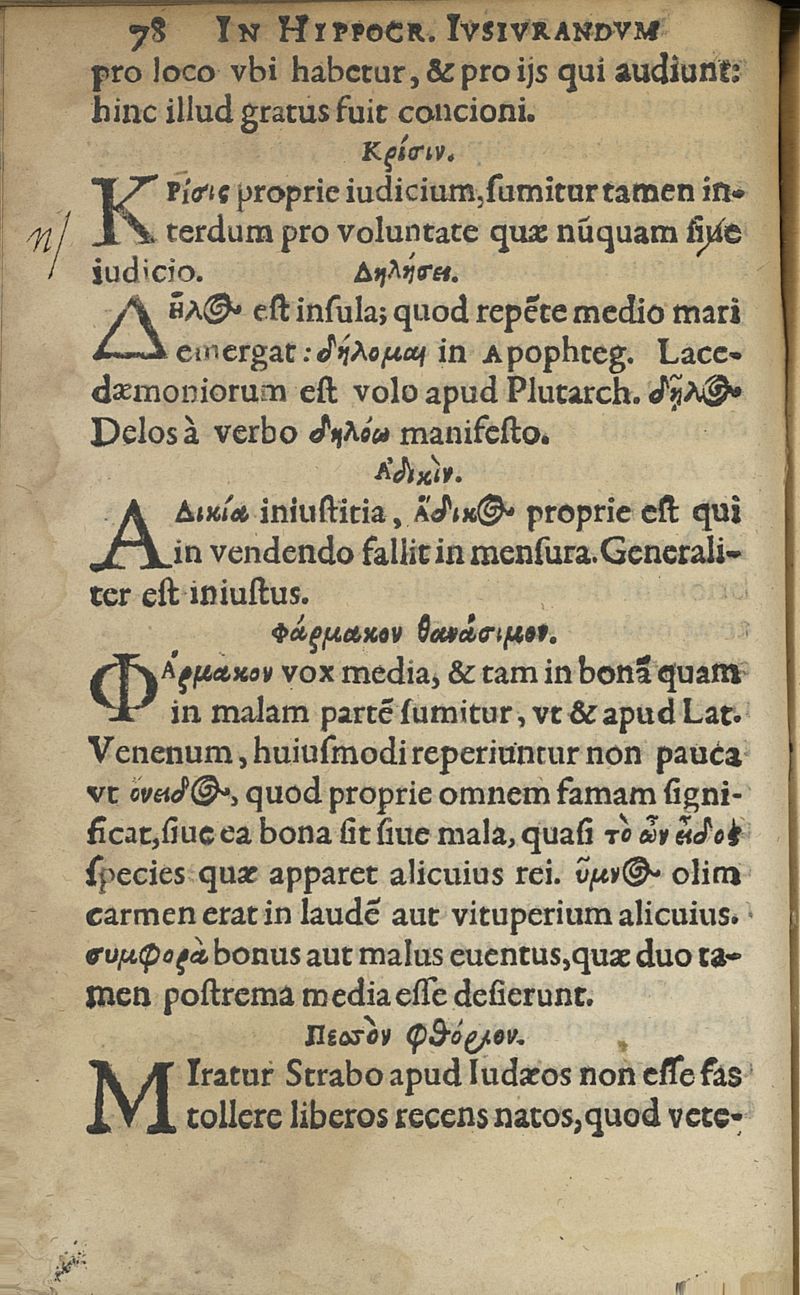 78 IN HIPPOCR. IVSIVRANDVM
pro loco vbi habetur, & pro ijs qui audiunt:
hinc illud gratus fuit concioni.
Κρίσιν.
ΚΡίσις proprie iudicium, ſumitur tamen in-
n/ terdum pro voluntate quæ nūquam ſiue
iudicio. Δηλήσει.
ΔΗ͂λος eſt inſula; quod repēte medio mari
emergat: δήλομαι in Apophteg. Lace-
dæmoniorum eſt volo apud Plutarch. δῆλος
Delos à verbo δηλόω manifeſto.
Ἀδικὶν.
ΑΔικία iniuſtitia, ἄδικος proprie eſt qui
in vendendo fallit in menſura. Generali-
ter eſt iniuſtus.
Φάρμακον θανάσιμον.
ΦΆρμακον vox media, & tam in bonā quam
in malam partē ſumitur, vt & apud Lat.
Venenum, huiuſmodi reperiuntur non pauca
vt ὀνειδος, quod proprie omnem famam ſigni-
ficat, ſiue ea bona ſit ſiue mala, quaſi τὸ ὢν εἶδος
ſpecies quæ apparet alicuius rei. ὕμνος olim
carmen erat in laudē aut vituperium alicuius.
συμφορὰ bonus aut malus euentus, quæ duo ta-
men poſtrema media eſſe deſierunt.
Πεσσὸν φθόριον.
MIratur Strabo apud Iudæos non eſſe fas
tollere liberos recens natos, quod vete-